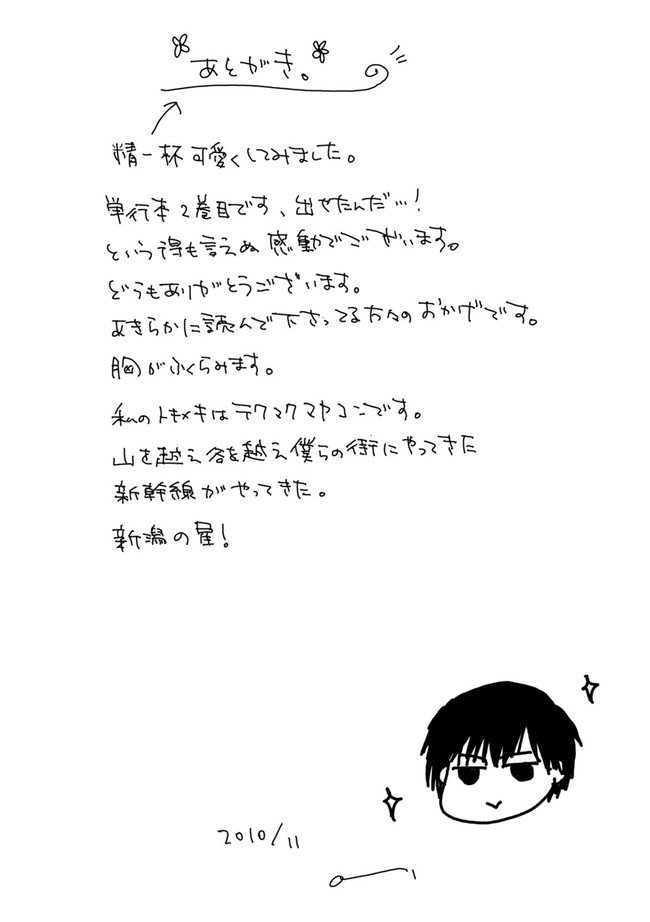 あとがき。
精一杯可愛くしてみました。
単行本2巻目です、出せたんだ…!
という得も言えぬ感動でございます。
どうもありがとうございます。
あきらかに読んで下さってる方々のおかげです。
胸がふくらみます。
私のトキメキはテクマクマヤコンです。
山を越え谷を越え僕らの街にやってきた
新幹線がやってきた。
新潟の星!
2010/11